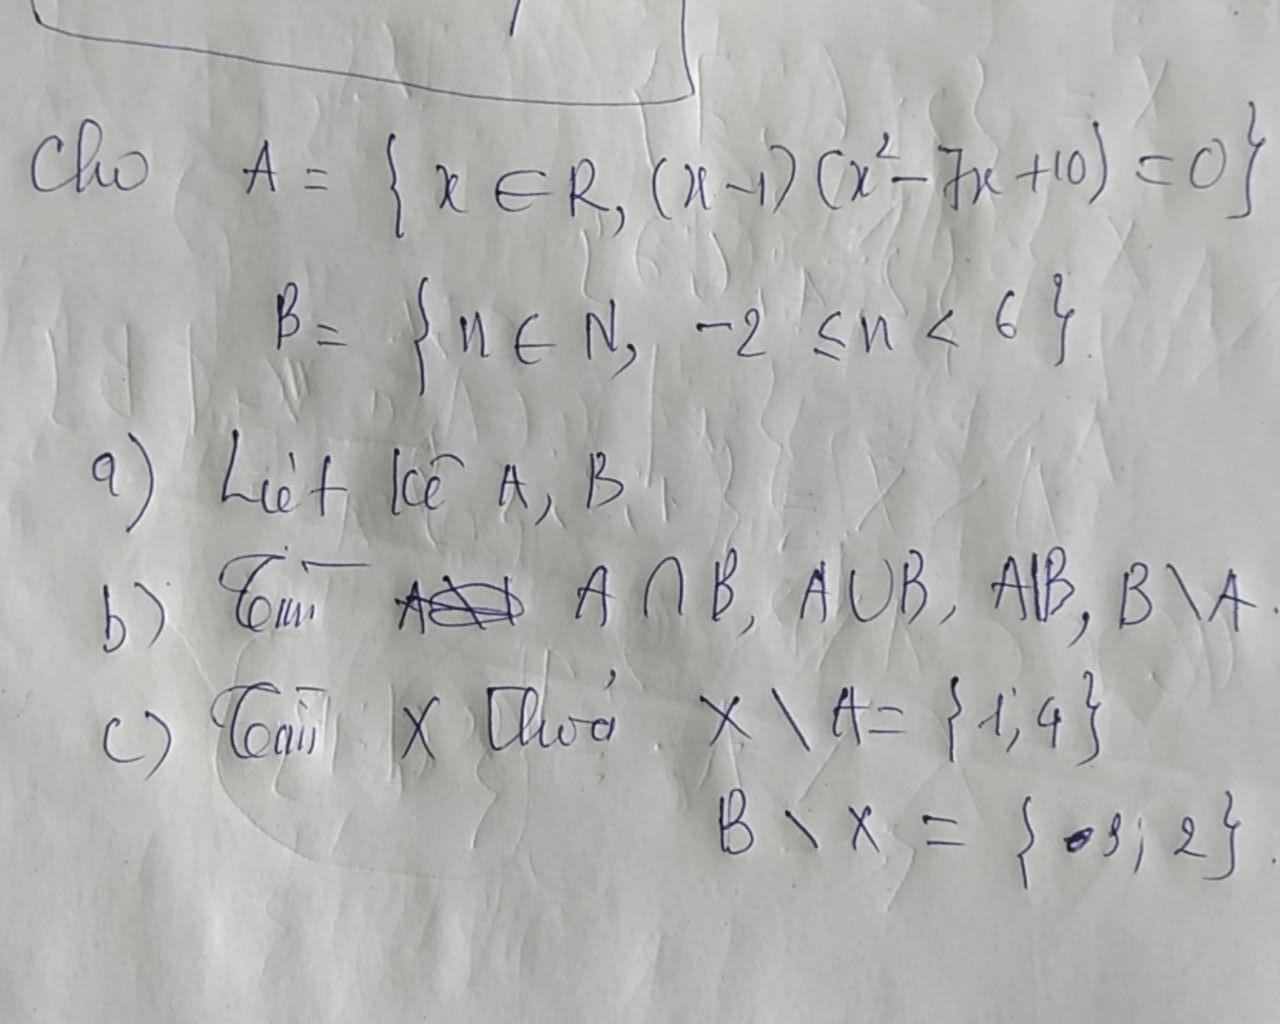 Cho A = { x ∈ R, (x-1) (x² - 7x + 10) = 0}
B = { n ∈ N, -2 ≤ n < 6 }.
a) Liệt kê A, B
b) Tìm A ∩ B, A ∪ B, A\B, B \ A.
c) Tìm X thoả X \ A = { 1; 4 }
B \ X = { 3; 2 }.